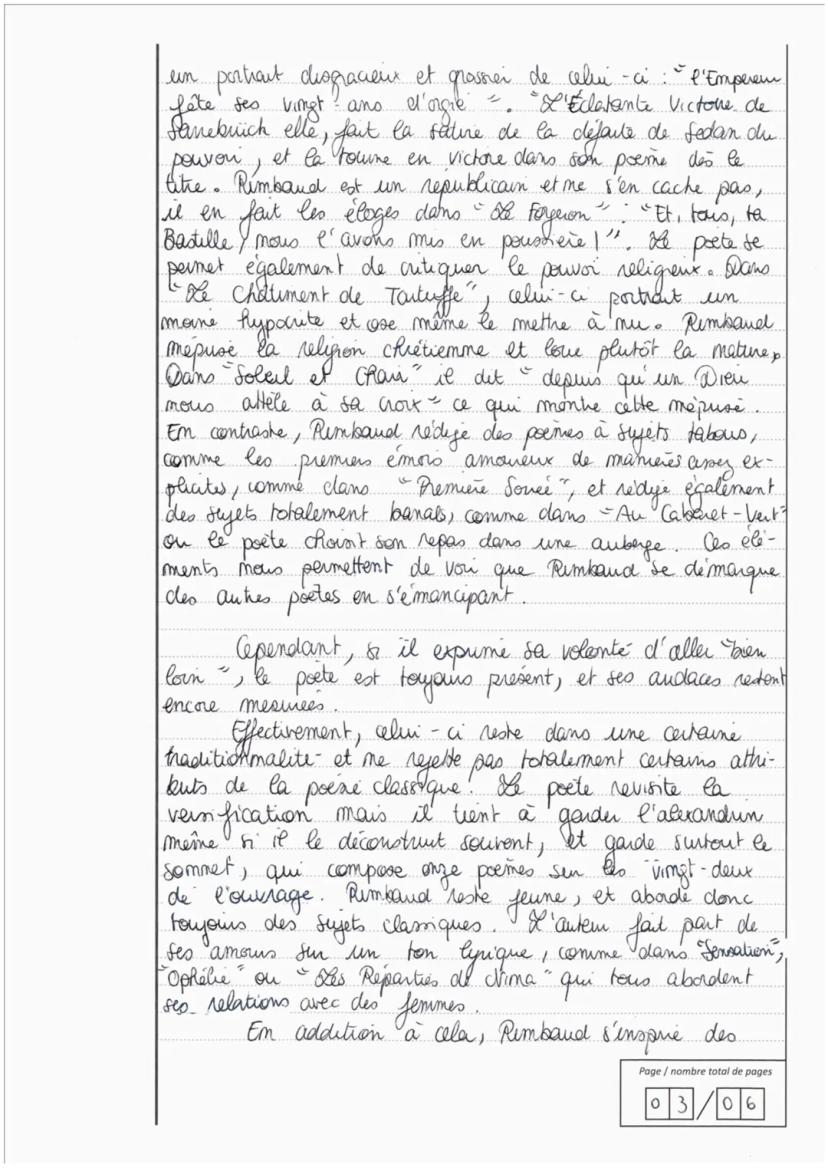 un portrait disgracieux et grossier de celui-ci : "l'Empereur
fête ses vingt ans d'orgie". "L'Éclatante Victoire de
Sarrebrück elle, fait la satire de la défaite de Sedan du
pouvoir, et la tourne en victoire dans son poème dès le
titre. Rimbaud est un républicain et ne s'en cache pas,
il en fait les éloges dans "Le Forgeron" : "Et, tous, ta
Bastille, nous l'avons mis en poussière !". Le poète se
permet également de critiquer le pouvoir religieux. Dans
"Le Châtiment de Tartuffe", celui-ci portrait un
moine hypocrite et ose même le mettre à nu. Rimbaud
méprise la religion chrétienne et loue plutôt la nature,
Dans "Soleil et Chair" il dit "depuis qu'un Dieu
nous attèle à sa croix" ce qui montre cette méprise.
En contraste, Rimbaud rédige des poèmes à sujets tabous,
comme les premiers émois amoureux de manières assez ex-
plicites, comme dans "Première Soirée", et rédige également
des sujets totalement banals, comme dans "Au Cabaret-Vert"
ou le poète choisit son repas dans une auberge. Ces élé-
ments nous permettent de voir que Rimbaud se démarque
des autres poètes en s'émancipant.
Cependant, si il exprime sa volonté d'aller "bien
loin", le poète est toujours présent, et ses audaces restent
encore mesurées.
Effectivement, celui-ci reste dans une certaine
traditionnalité et ne rejette pas totalement certains attri-
buts de la poésie classique. Le poète revisite la
versification mais il tient à garder l'alexandrin
même si il le déconstruit souvent, et garde surtout le
sonnet, qui compose onze poèmes sur les vingt-deux
de l'ouvrage. Rimbaud reste jeune, et aborde donc
toujours des sujets classiques. L'auteur fait part de
ses amours sur un ton lyrique, comme dans "Sensation",
"Ophélie" ou "Les Réparties de Nina" qui tous abordent
ses relations avec des femmes.
En addition à cela, Rimbaud s'inspire des
Page / nombre total de pages
03/06